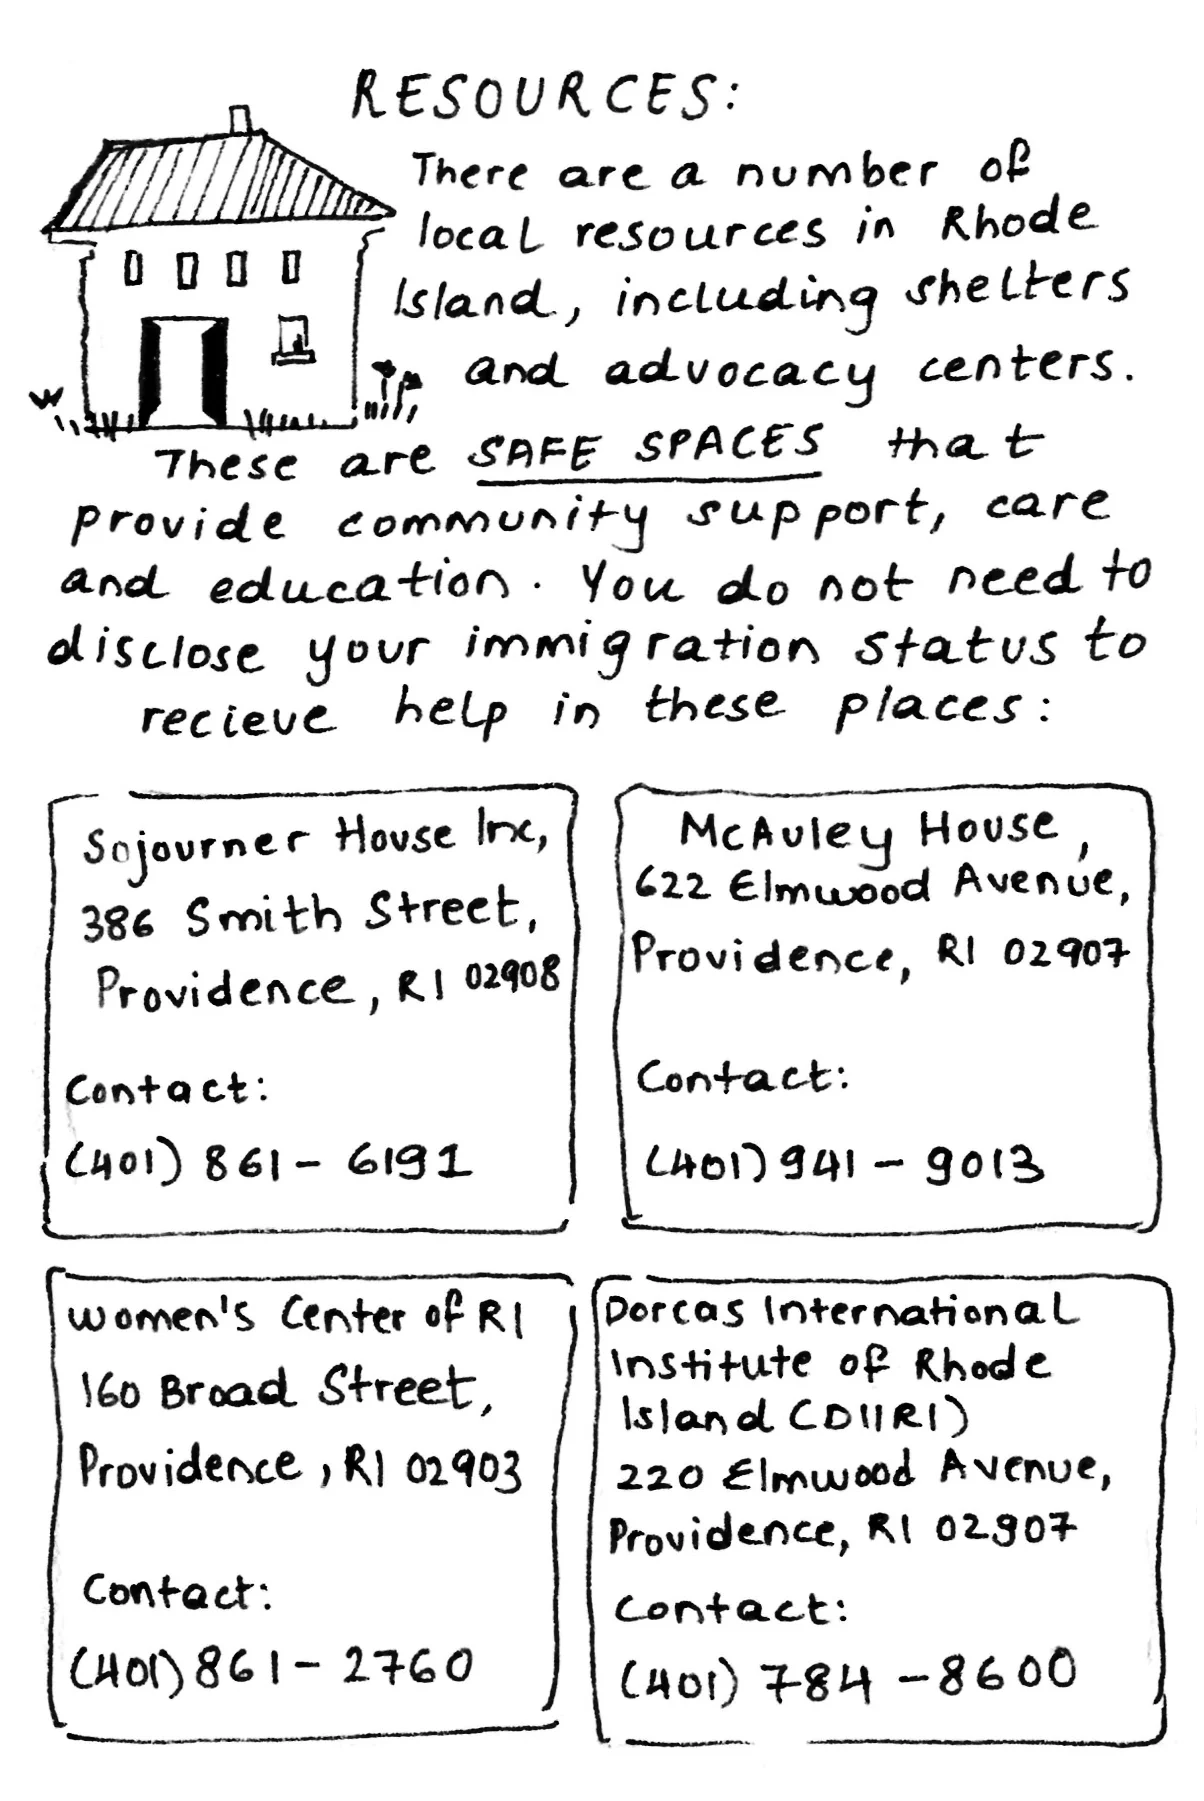 RESOURCES:
There are a number of
local resources in Rhode
Island, including shelters
and advocacy centers.
These are SAFE SPACES that
provide community support, care
and education. You do not need to
disclose your immigration status to
recieve help in these places:
Sojourner House Inc,
386 Smith Street,
Providence, RI 02908
Contact:
(401) 861 - 6191
McAuley House,
622 Elmwood Avenue,
Providence, RI 02907
Contact:
(401) 941 - 9013
Women's Center of RI
160 Broad Street,
Providence, RI 02903
Contact:
(401) 861 - 2760
Dorcas International
Institute of Rhode
Island (DIIRI)
220 Elmwood Avenue,
Providence, RI 02907
Contact:
(401) 784 - 8600